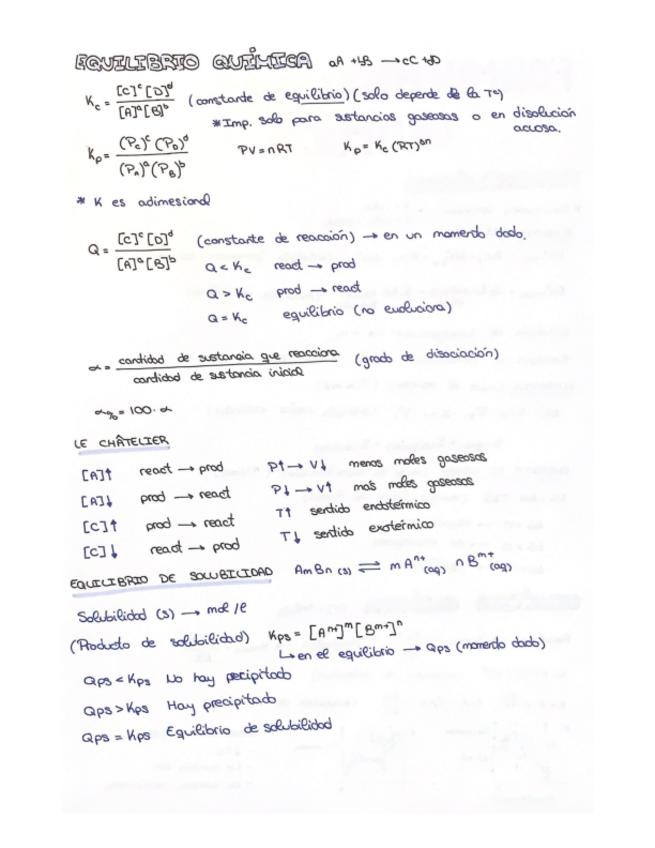 EQUILIBRIO QUÍMICA aA + bB → cC + dD
Kc = [C]^c [D]^d / [A]^a [B]^b (constante de equilibrio) (solo depende de la Tª)
*Imp. solo para sustancias gaseosas o en disolución acuosa.
Kp = (Pc)^c (PD)^d / (PA)^a (PB)^b PV = nRT Kp = Kc (RT)^Δn
* K es adimesional
Q = [C]^c [D]^d / [A]^a [B]^b (constante de reacción) → en un momento dado.
Q < Kc react → prod
Q > Kc prod → react
Q = Kc equilibrio (no evoluciona)
α = cantidad de sustancia que reacciona / cantidad de sustancia inicial (grado de disociación)
α% = 100 · α
LE CHÂTELIER
[A]↑ react → prod P↑ → V↓ menos moles gaseosos
[A]↓ prod → react P↓ → V↑ más moles gaseosos
[C]↑ prod → react T↑ sentido endotérmico
[C]↓ react → prod T↓ sentido exotérmico
EQUILIBRIO DE SOLUBILIDAD AmBn (s) ⇌ m A^n+ (aq) n B^m+ (aq)
Solubilidad (s) → mol/l
(Producto de solubilidad) Kps = [A^n+]^m [B^m+]^n
↳ en el equilibrio → Qps (momento dado)
Qps < Kps No hay precipitado
Qps > Kps Hay precipitado
Qps = Kps Equilibrio de solubilidad